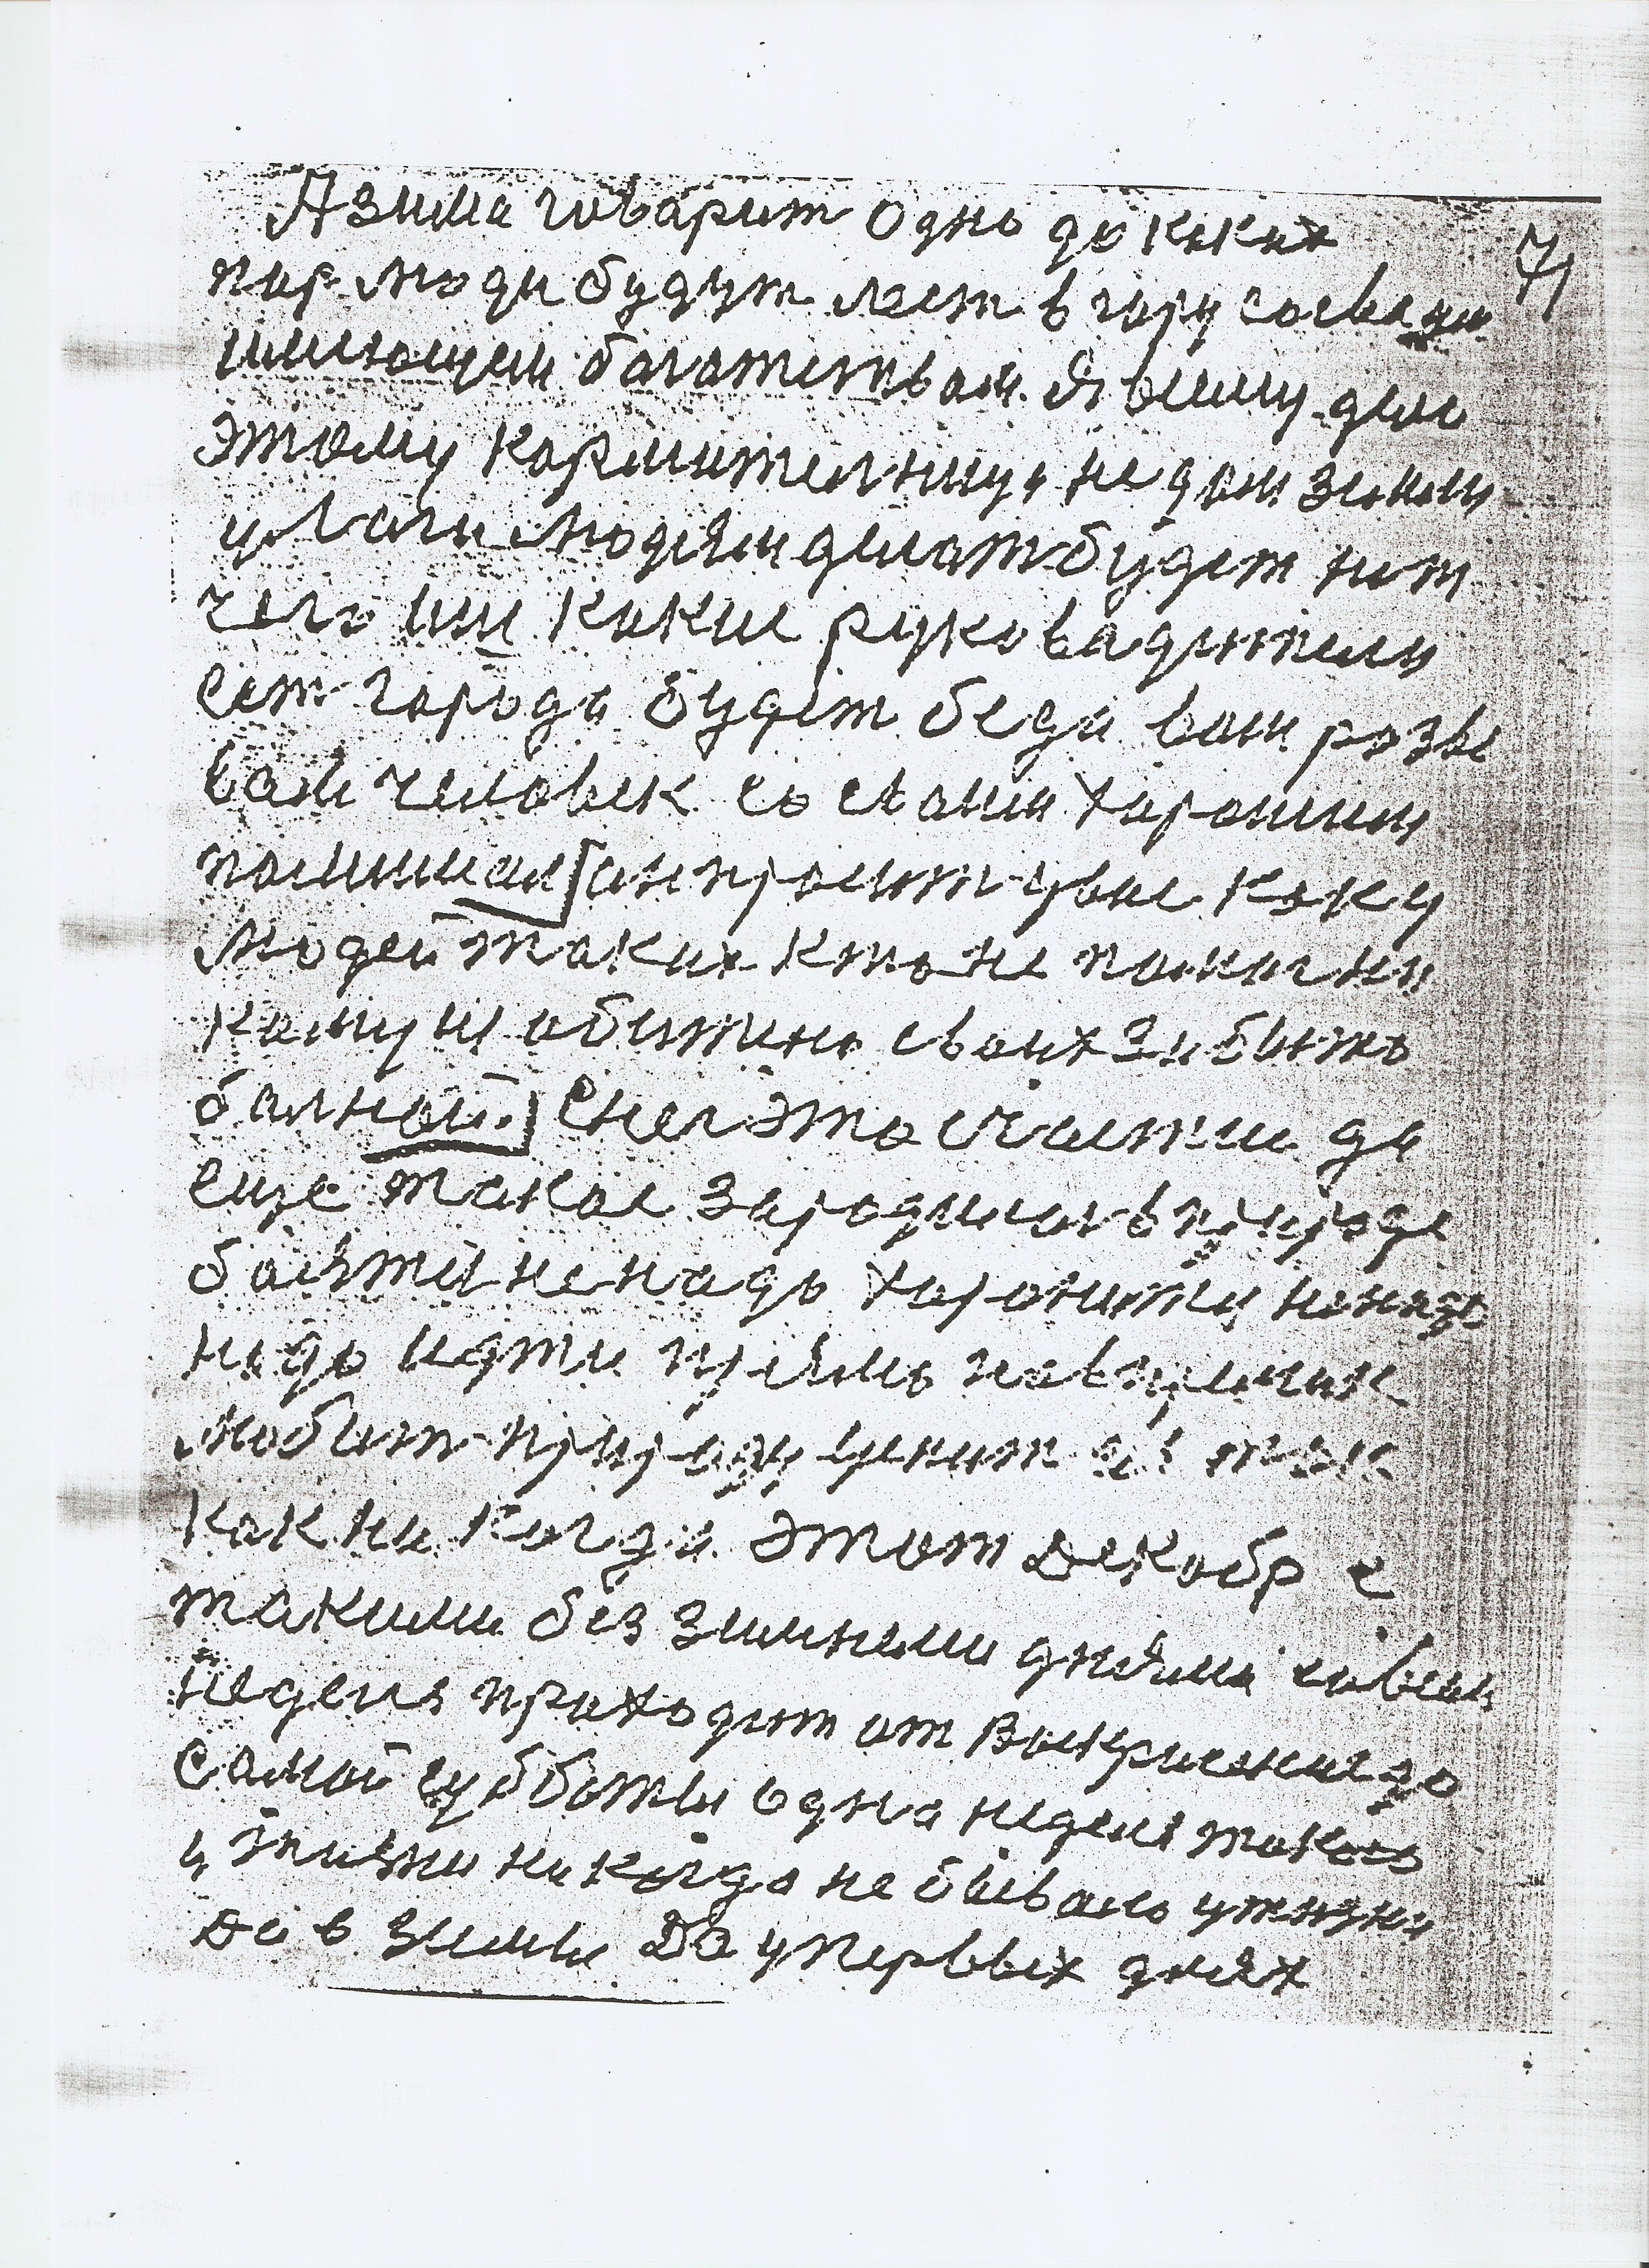 Азима говарит одно до каких
71
пор люди будут лест в гору сосваим
имиющем богатством. Я вииму дам
этому кормителницу не дам земли
условги людям длиат будет нет
чего им какие руковадители
сет города будет беда вот разве
вай человек со своим харошим
помишил [он просит увас каку
людей таких кто не помагни
каму не обитино своих забыто
болной.] Снег это счастие да
еще такое зародилос в природе
боятся не надо хоронится ненада
надо идти прямо новстречик
любит природу ценит её так
как ни когда. Этот декабр с
такими без зимними днями совсем
неделя проходит от воскрисения до
самой субботы одна неделя такого
у жизни никогда не бывало ужизни
да в зимы Да упервых днях